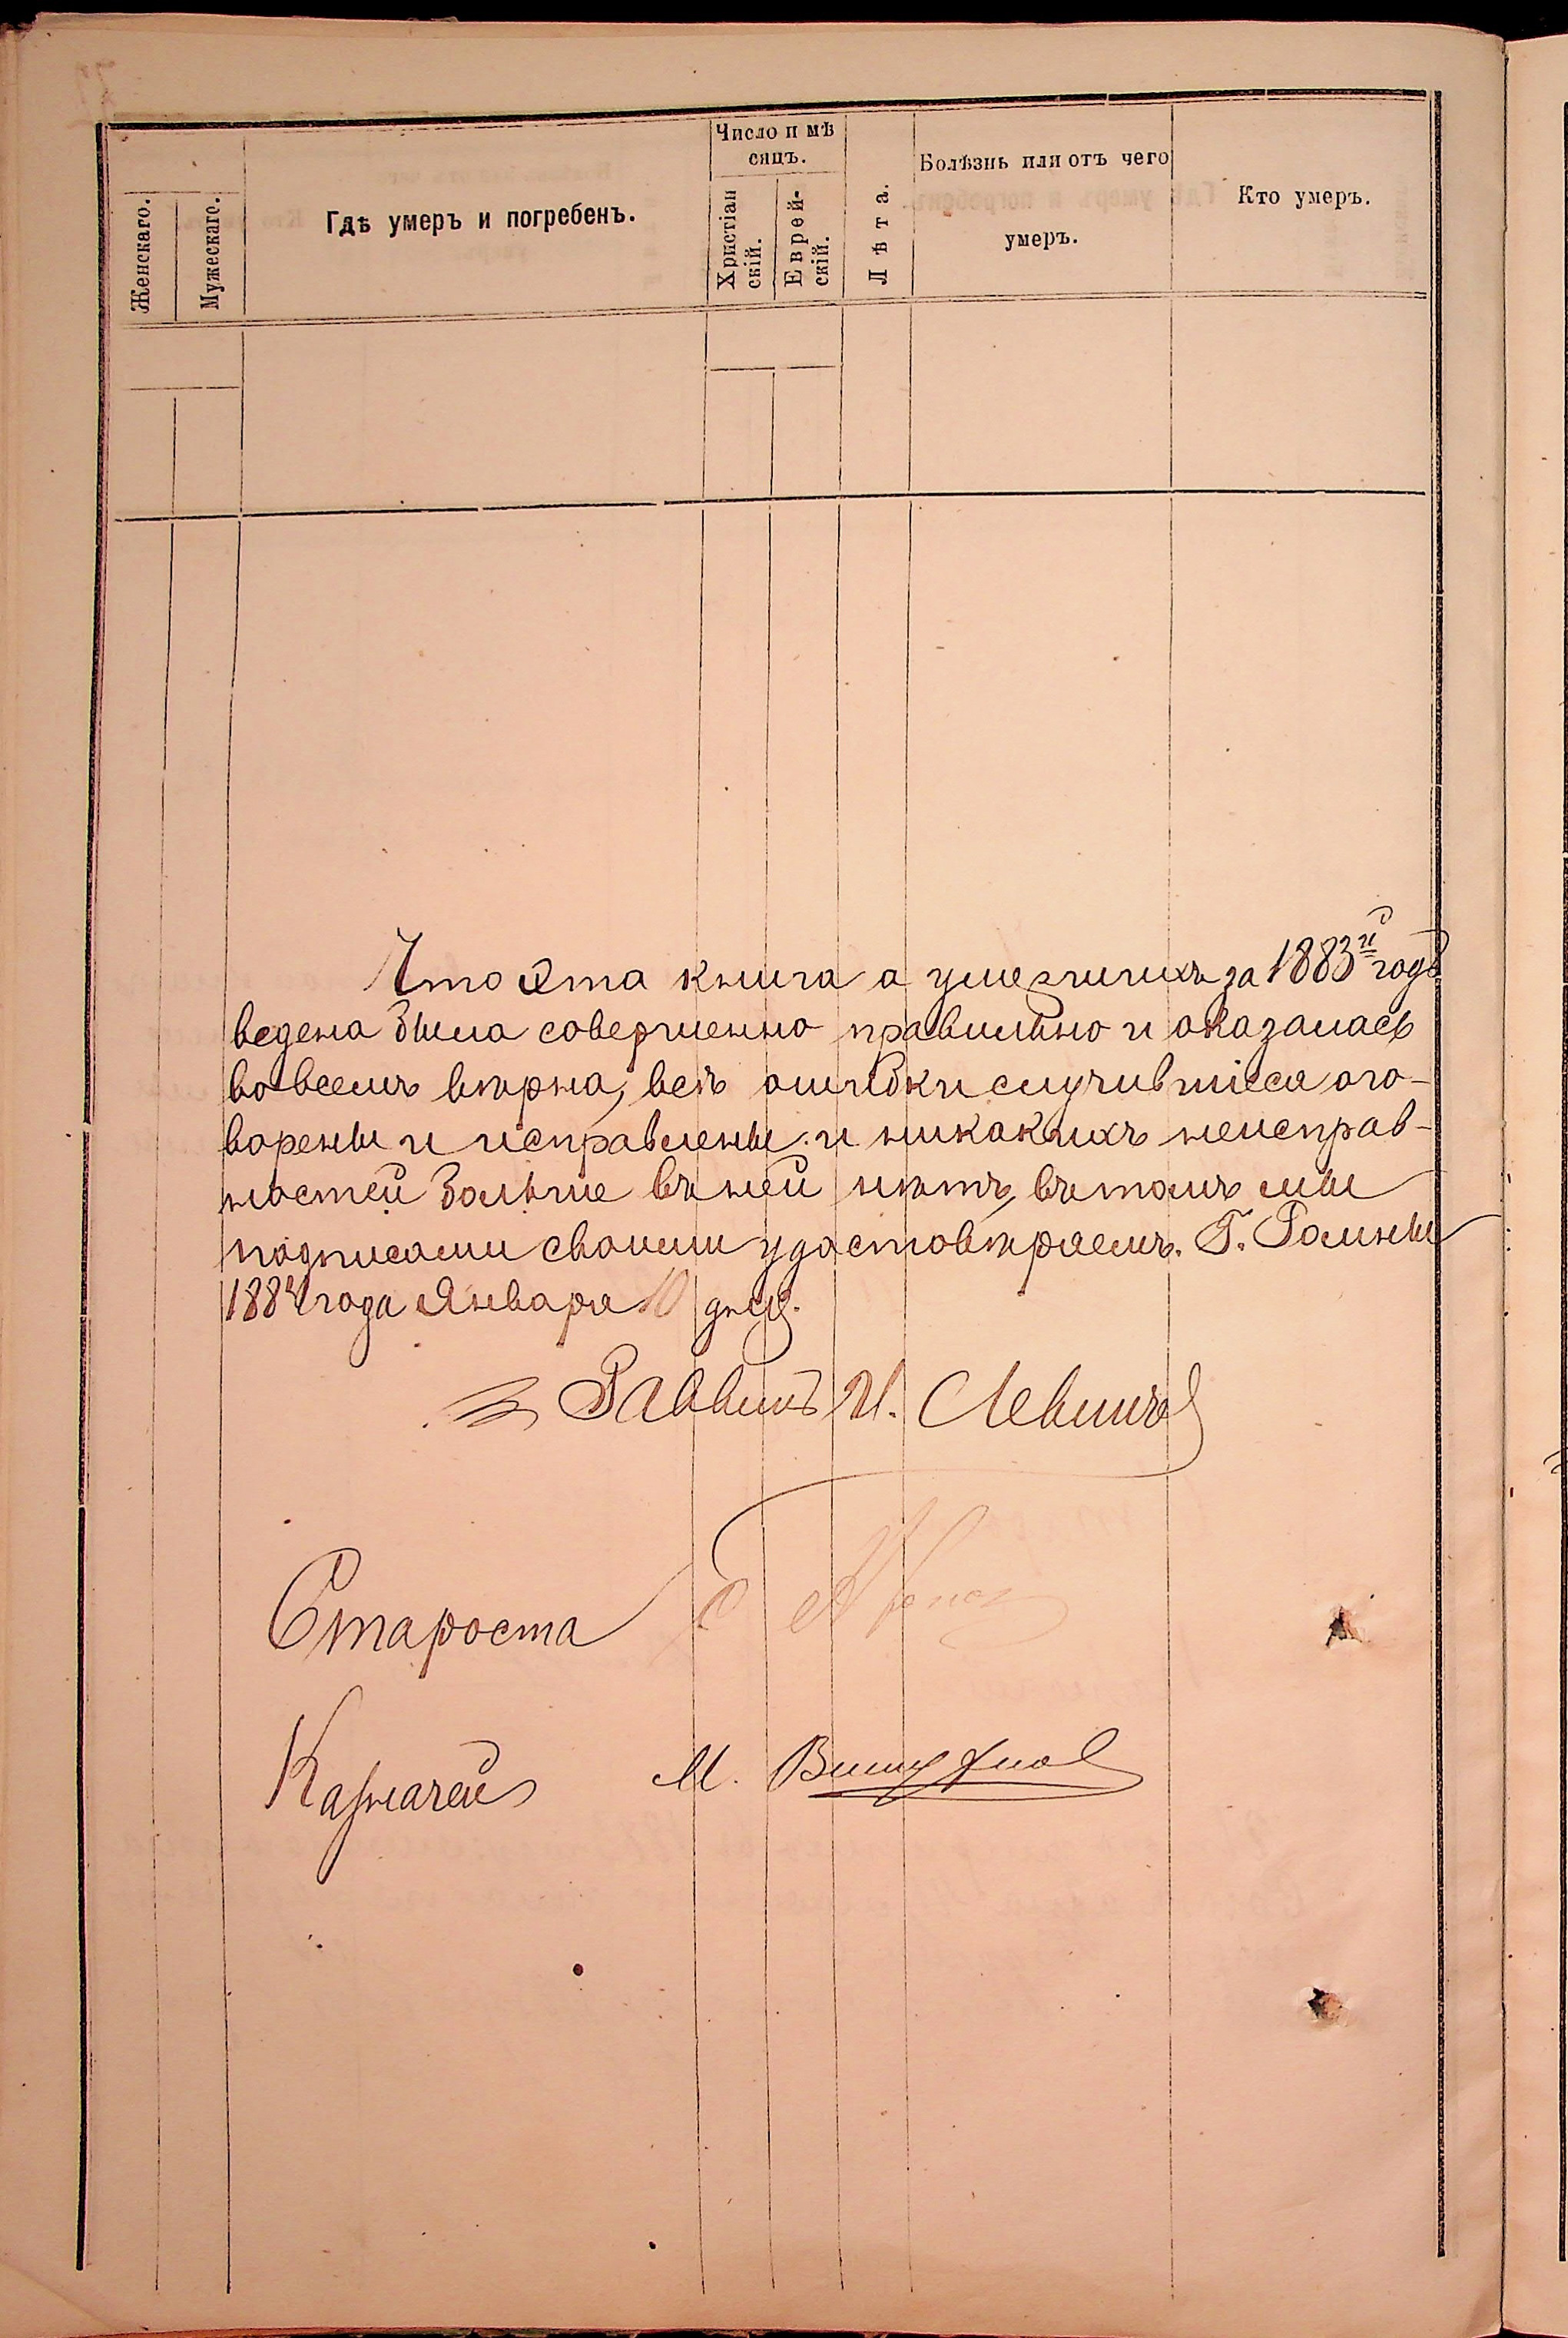 Число и мѣ
сяцъ.
Женскаго.
Мужескаго.
Гдѣ умеръ и погребенъ.
Христіан
скій.
Еврей-
скій.
Лѣта.
Болѣзнь или отъ чего
умеръ.
Кто умеръ.
Что эта книга о умершихъ за 1883й годъ
ведена была совершенно правильно и оказалась
во всемъ вѣрна, всѣ ошибки случившіеся ого-
ворены и исправлены и никакихъ неисправ-
ностей больше въ ней нѣтъ, въ томъ мы
подписами своими удостовѣряемъ. Г. Ромны
1884 года Января 10 дня.
Раввинъ И. Левинъ
Староста
Казначей М.